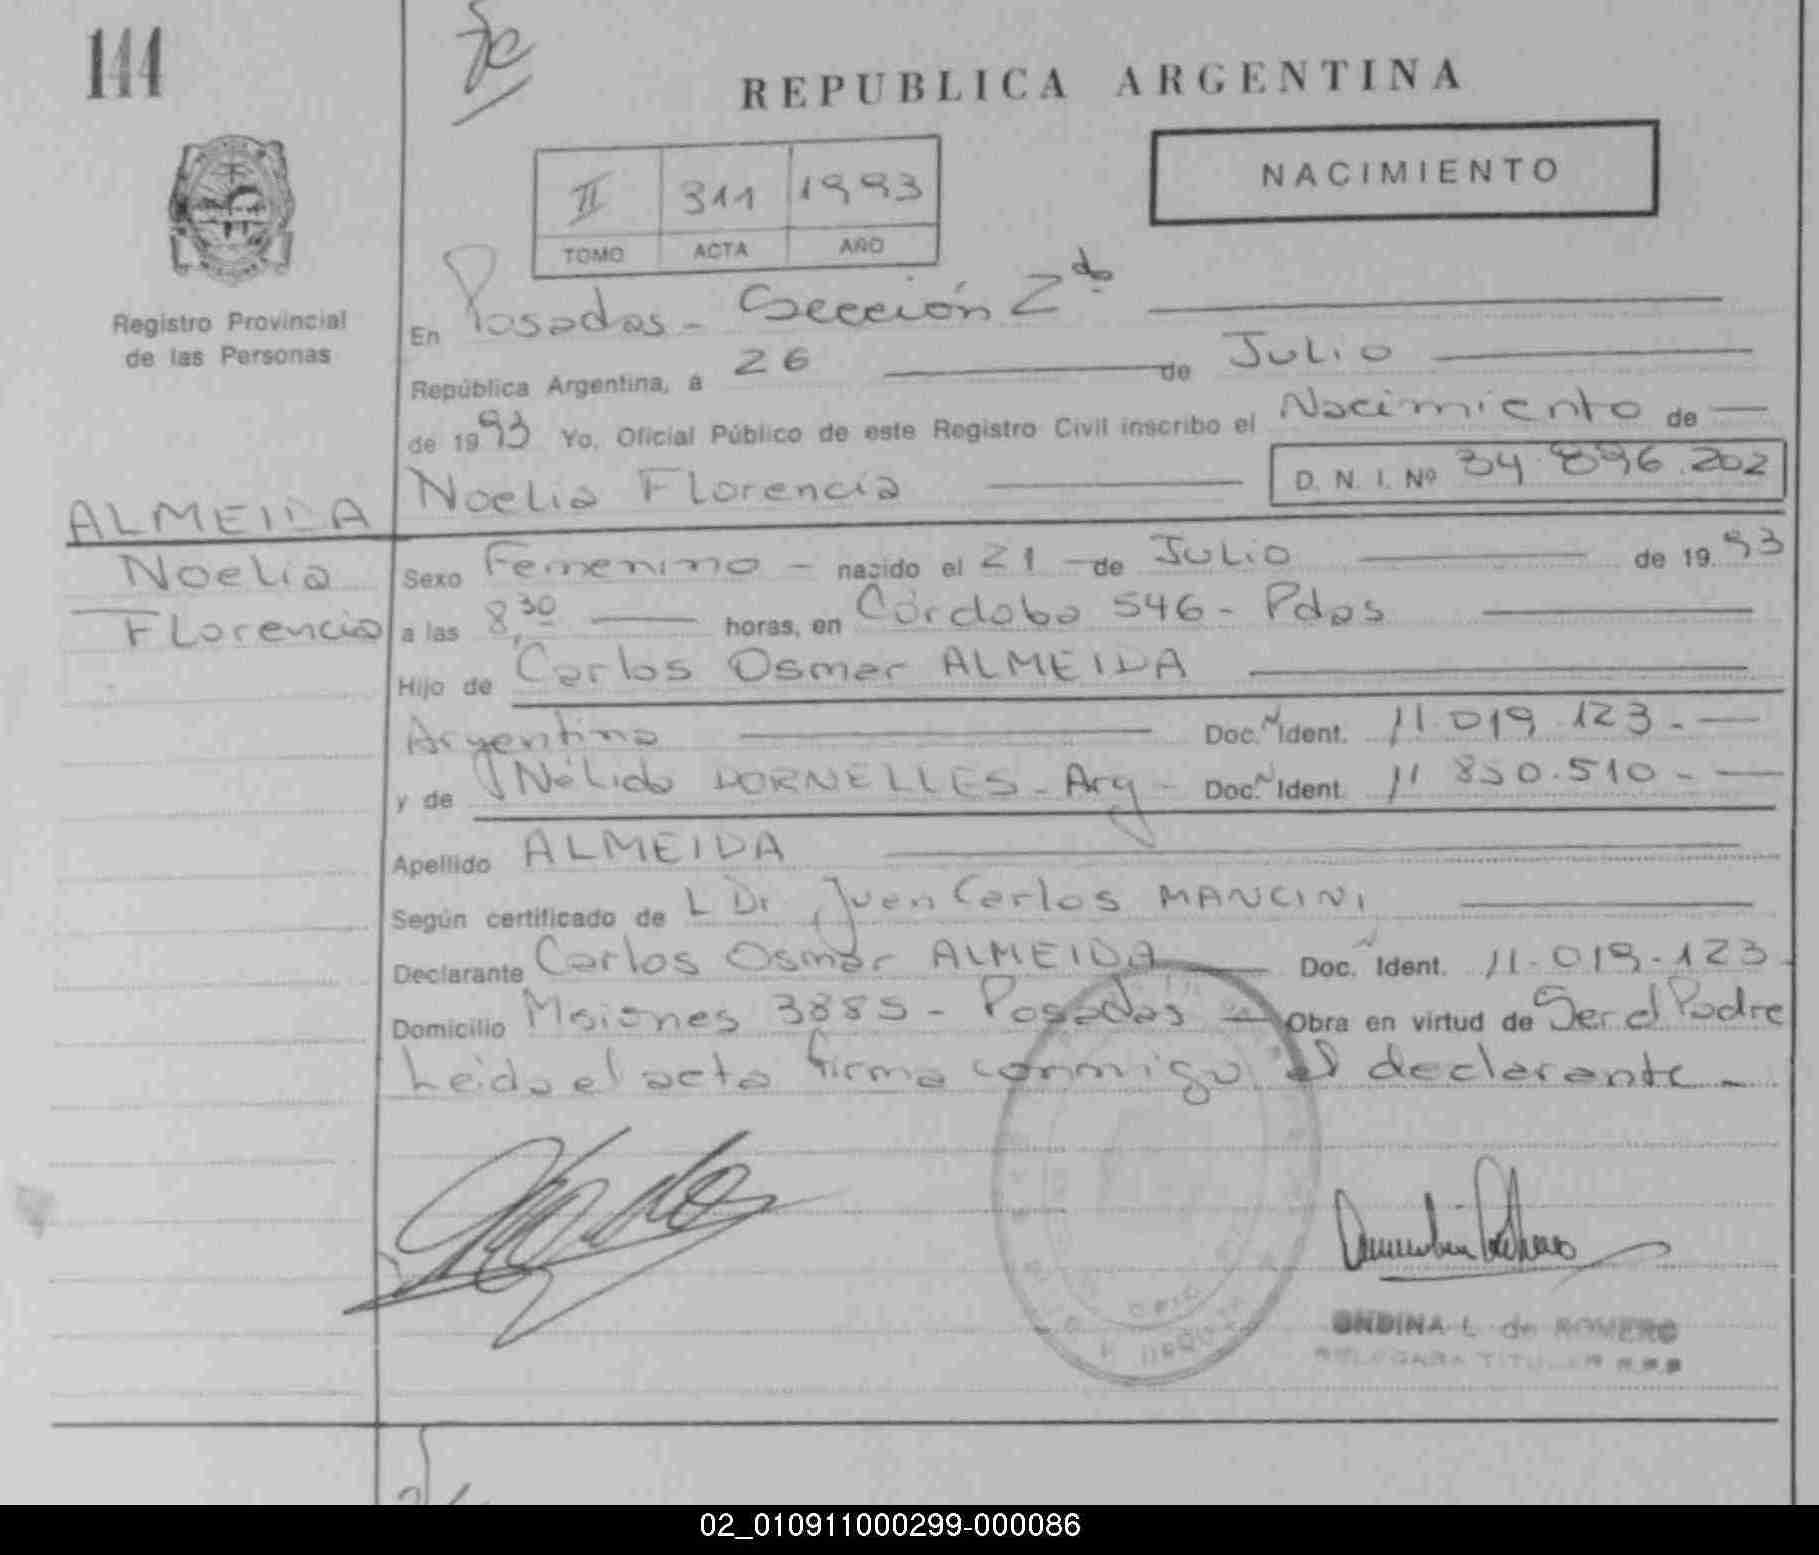 144
REPUBLICA ARGENTINA
NACIMIENTO
II 311 1993
TOMO ACTA AÑO
Registro Provincial
de las Personas
En Posadas - Sección 2da
República Argentina, a 26 de Julio
de 1993 Yo, Oficial Público de este Registro Civil inscribo el Nacimiento de
Noelia Florencia D. N. I. Nº 34.896.202
ALMEIDA
Noelia
Florencia
Sexo Femenino - nacido el 21 - de Julio de 19.93
a las 8,30 horas, en Córdoba 546 - Pdas
Hijo de Carlos Osmar ALMEIDA
Argentina Doc. Ident. 11.019.123.-
y de Nélida DORNELLES - Arg - Doc. Ident. 11 850.510 -
Apellido ALMEIDA
Según certificado de L Dr Juan Carlos MANCINI
Declarante Carlos Osmar ALMEIDA Doc. Ident. 11.019.123.
Domicilio Misiones 3885 - Posadas - Obra en virtud de Ser el Padre
Leida el acta firma conmigo el declarante -
ONDINA L. de ROMERO
DELEGADA TITULAR
02_010911000299-000086